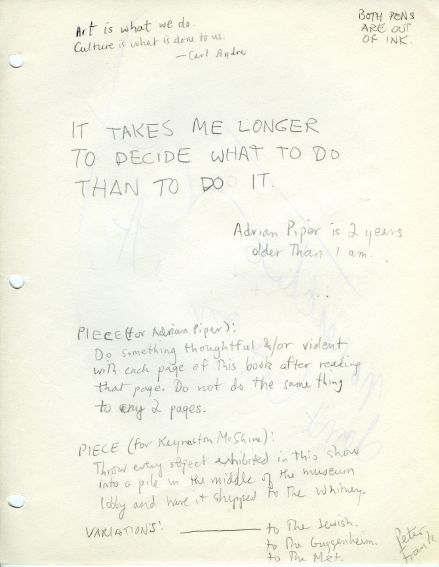 Art is what we do.
Culture is what is done to us.
— Carl Andre
BOTH PENS
ARE OUT
OF INK.
IT TAKES ME LONGER
TO DECIDE WHAT TO DO
THAN TO DO IT.
Adrian Piper is 2 years
older Than I am.
PIECE (for Adrian Piper):
Do something thoughtful &/or violent
with each page of This book after reading
that page. Do not do the same thing
to any 2 pages.
PIECE (for Keynaston McShine):
Throw every object exhibited in this show
into a pile in the middle of the museum
lobby and have it shipped to The Whitney.
VARIATIONS: ———— to The Jewish.
to The Guggenheim.
to The Met.
Peter
Frank